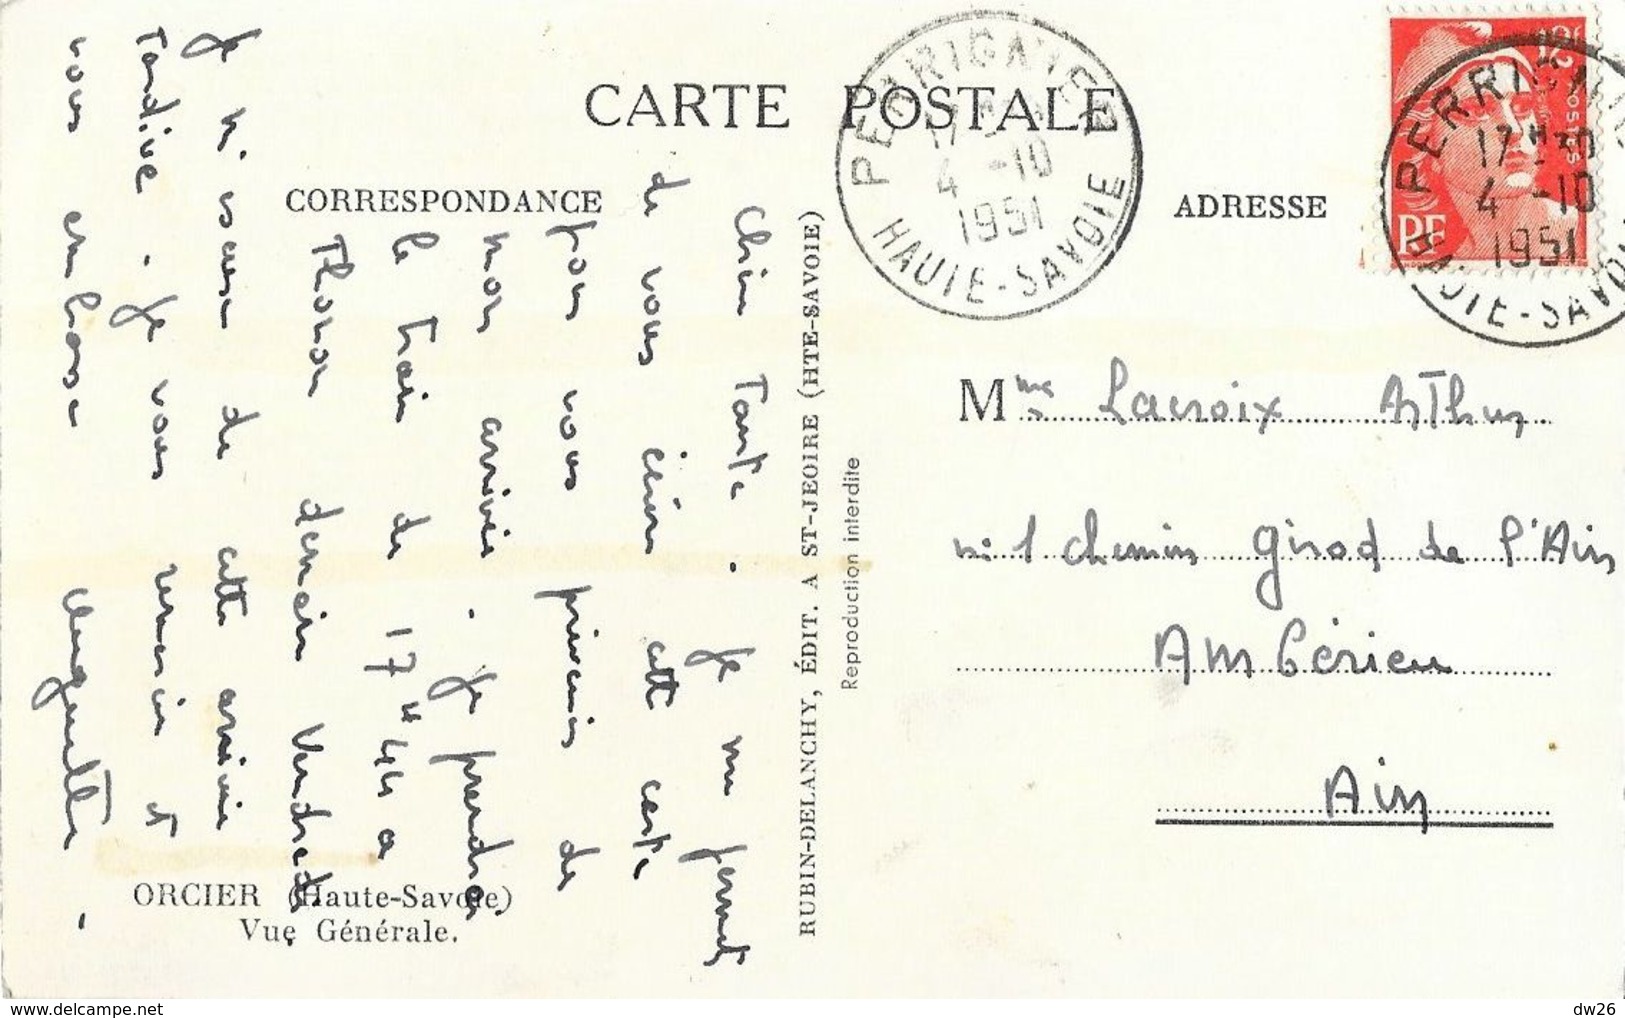 CARTE POSTALE
CORRESPONDANCE
ADRESSE
PERRIGNIER
17H30
4 -10
1951
HAUTE-SAVOIE
12F
POSTES
RF
PERRIGNIER
17H30
4 -10
1951
HAUTE-SAVOIE
Chère Tante. Je me permets
de vous écrire cette carte
pour vous prévenir de
mon arrivée. Je prendrai
le train de 17H44 à
Thonon demain Vendredi
Je m'excuse de cette arrivée
Tardive. Je vous remercie et
vous embrasse
Huguette.
RUBIN-DELANCHY, ÉDIT. A ST-JEOIRE (HTE-SAVOIE)
Reproduction interdite
Mme Lacroix Arthur
n: 1 chemin Girod de l'Ain
Ambérieu
Ain
ORCIER (Haute-Savoie)
Vue Générale.
dw26